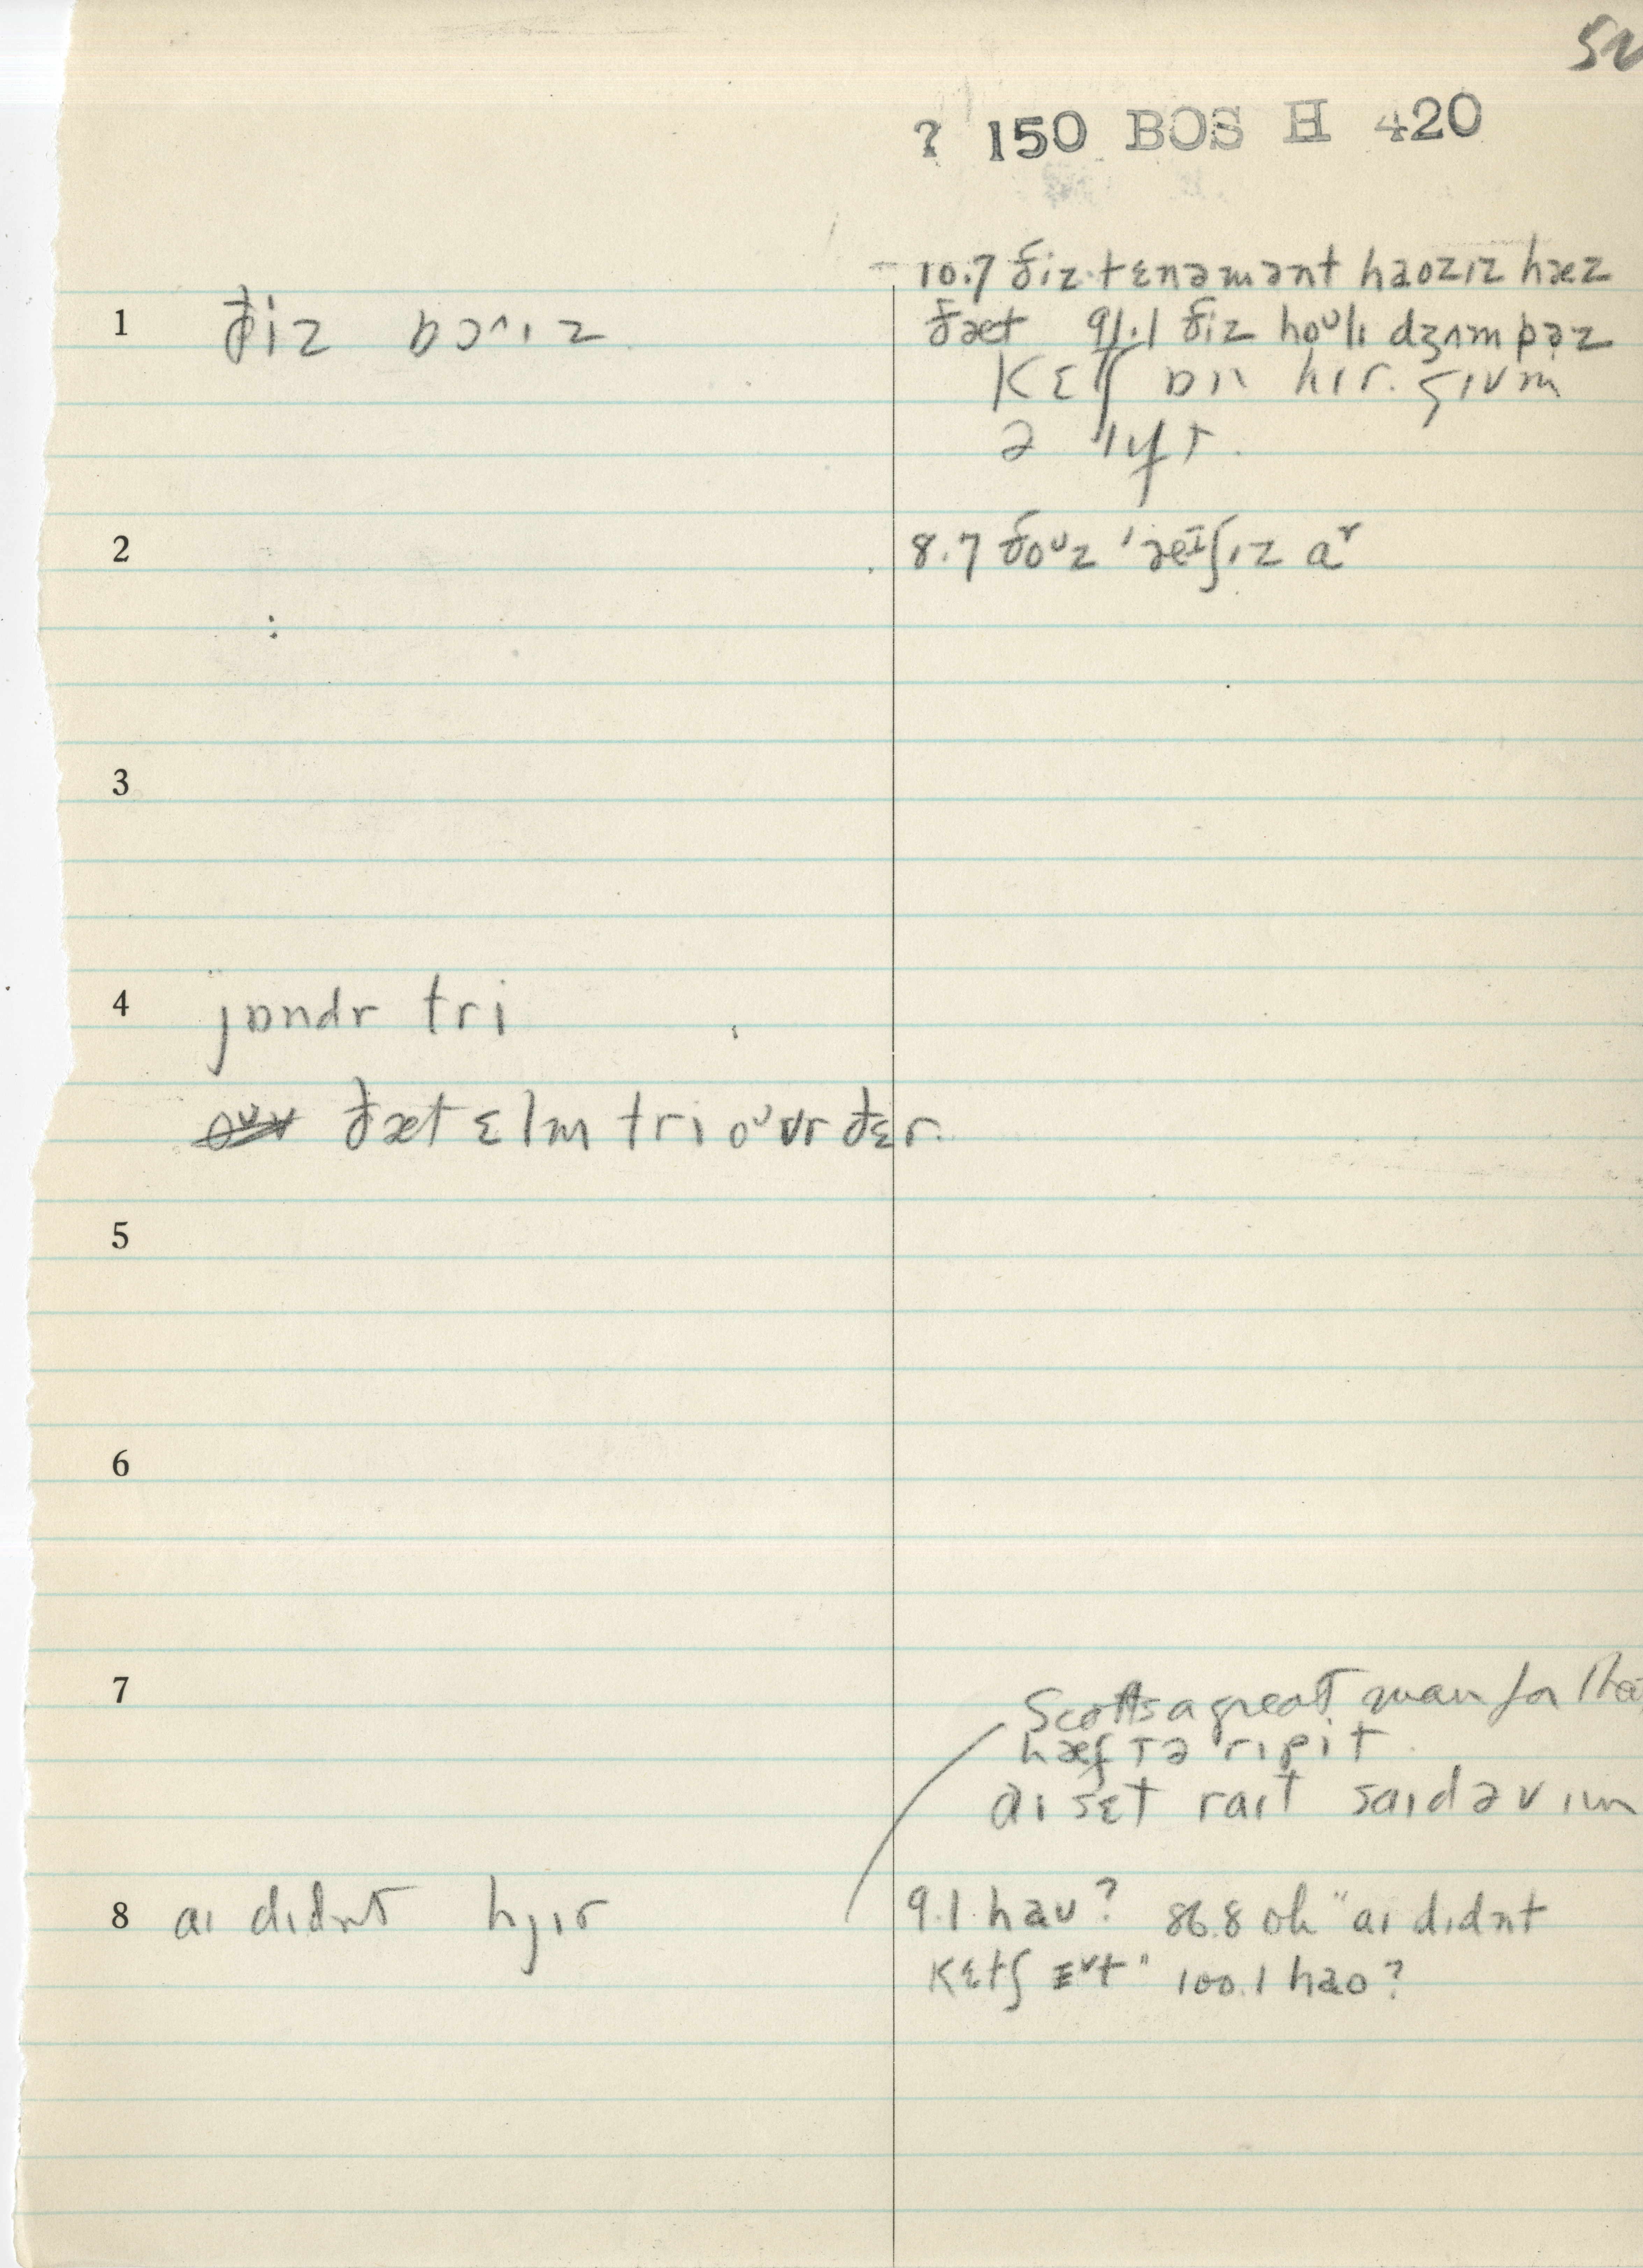 52
? 150 BOS H 420
10.7 ðiz tɛnəmənt haozɪz hæz
1 ðiz bɔˑɪz
ðæt 91.1 ðiz hoᴜlɪ dʒʌmpəz
kɛtʃ ɒn hɪr. gɪvm
ə lɪft.
2 8.7 ðoᴜz
3
4 jɒndr tri
ðæt ɛlm tri oᴜvr ðɛr.
5
6
7 Scotts a great man for tha
hæf tə rɪpit
aɪ sɛt raɪt saɪd əv ɪm
8 aɪ dɪdnt hjɪr 9.1 haᴜ? 86.8 oh "aɪ dɪdnt
kɛtʃ ɪᵛt" 100.1 hao?